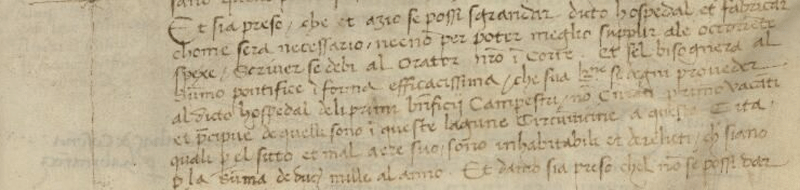 Et sia preso, che et azio se possi sgrandar dicto hospedal et fabricar
chome sera necessario, necnõ per poter meglio supplir ale occorrẽte
spexe, Scriver se debi al Orator nr̃o ĩ Corte et sel bisognera al
Sum̃o pontifice ĩ forma efficacissima, che sua se degni proveder
al dicto hospedal deli primi bñficij Campestri, nõ Curati primo vacãti
et p̃cipue de quelli sono ĩ queste lagune Circũvicine a questa Cita,
quali p el sitto et mal aere suo, sono inhabitabile et derelicti, ch siano
p la sum̃a de duc̃ mille al anno. Et dacio sia preso chel nõ se possi dar